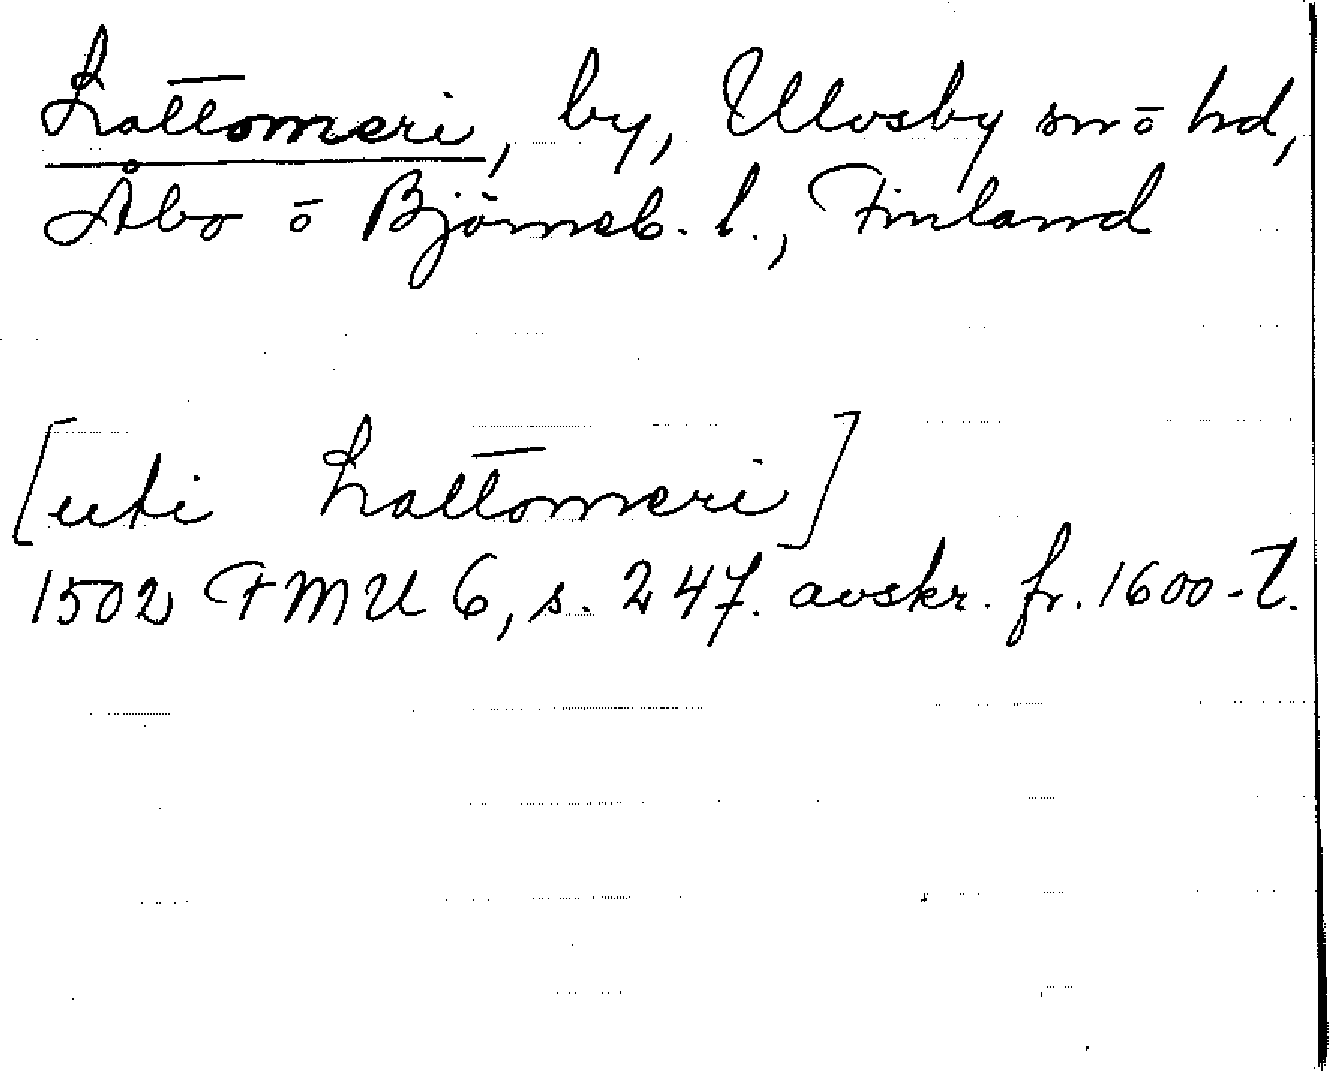 Lattomeri, by, Ulvsby sn ō hd,
Åbo ō Björneb. l., Finland
[uti Lattomeri]
1502 FMU 6, s. 247. avskr. fr. 1600-t.